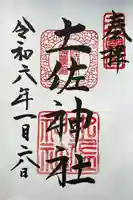 奉拝
土佐神社
令和六年一月六日